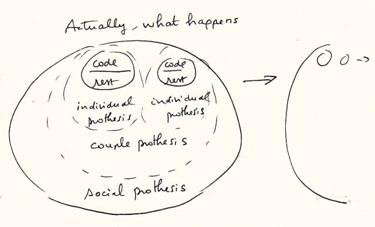 Actually, what happens
code code
rest rest
individual individual
prothesis prothesis
couple prothesis
social prothesis